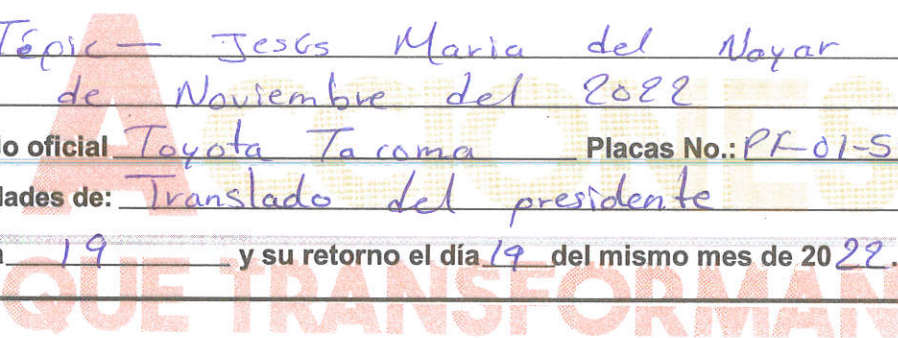 Tépic — Jesús Maria del Nayar
de Noviembre del 2022
lo oficial Toyota Tacoma Placas No.: PF-01-S
dades de: Translado del presidente
19 y su retorno el día 19 del mismo mes de 2022.
ACCIONES
QUE TRANSFORMAN